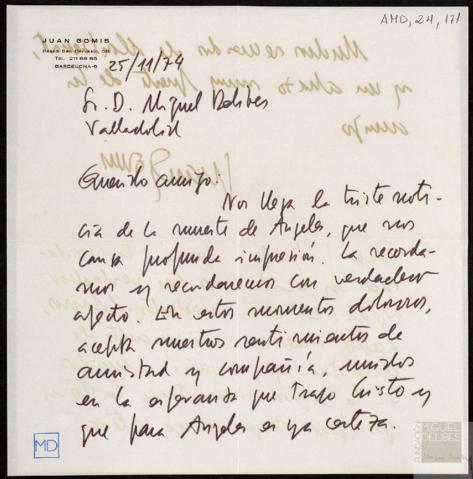 AMD, 24, 171
JUAN GOMIS
Paseo San Gervasio,
Tel. 211 68 85
BARCELONA-6
25/11/74
Sr. D. Miguel Delibes
Valladolid
Querido amigo:
Nos llega la triste noti-
cia de la muerte de Angeles, que nos
causa profunda impresión. La recorda-
mos y recordaremos con verdadero
afecto. En estos momentos dolorosos,
acepta nuestros sentimientos de
amistad y compañía, unidos
en la esperanza que trajo Cristo y
que para Angeles es ya certeza.
MD
FUNDACIÓN
MIGUEL
DELIBES